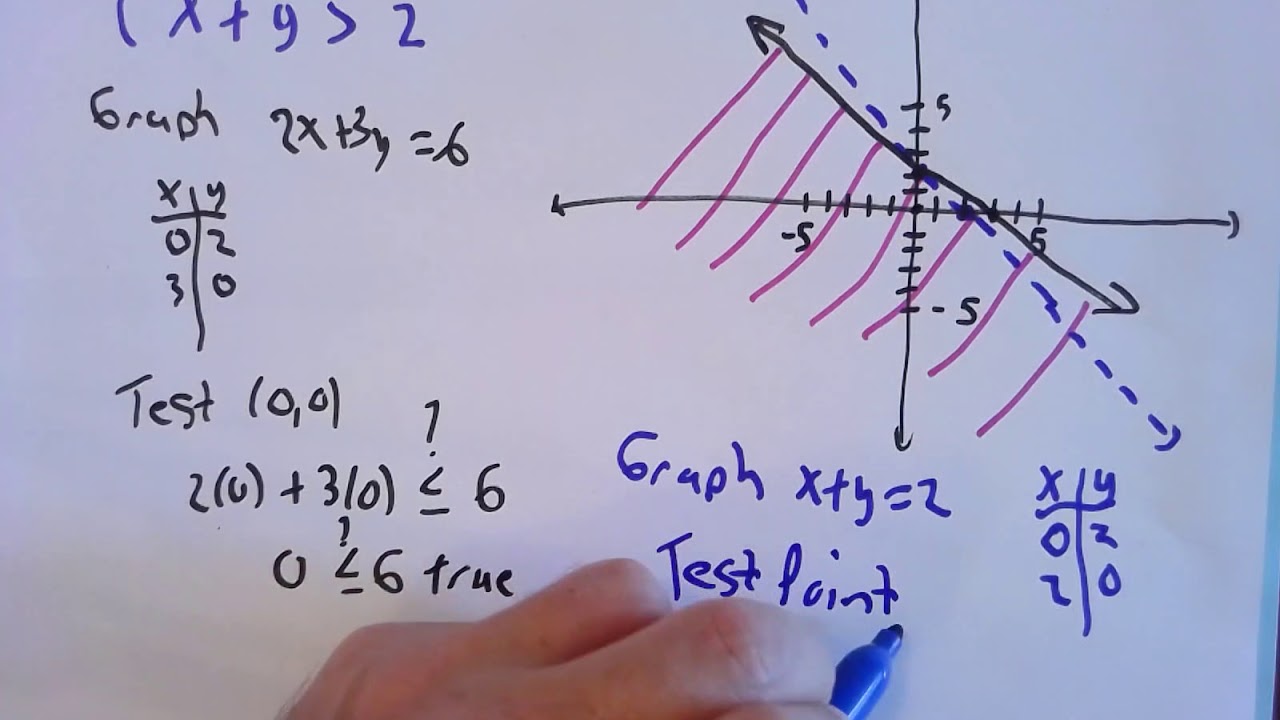 ( x + y > 2
Graph 2x + 3y = 6
x | y
0 | 2
3 | 0
Test (0,0)
?
2(0) + 3(0) ≤ 6
?
0 ≤ 6 true
5
-5
5
-5
Graph x + y = 2
x | y
0 | 2
2 | 0
Test Point